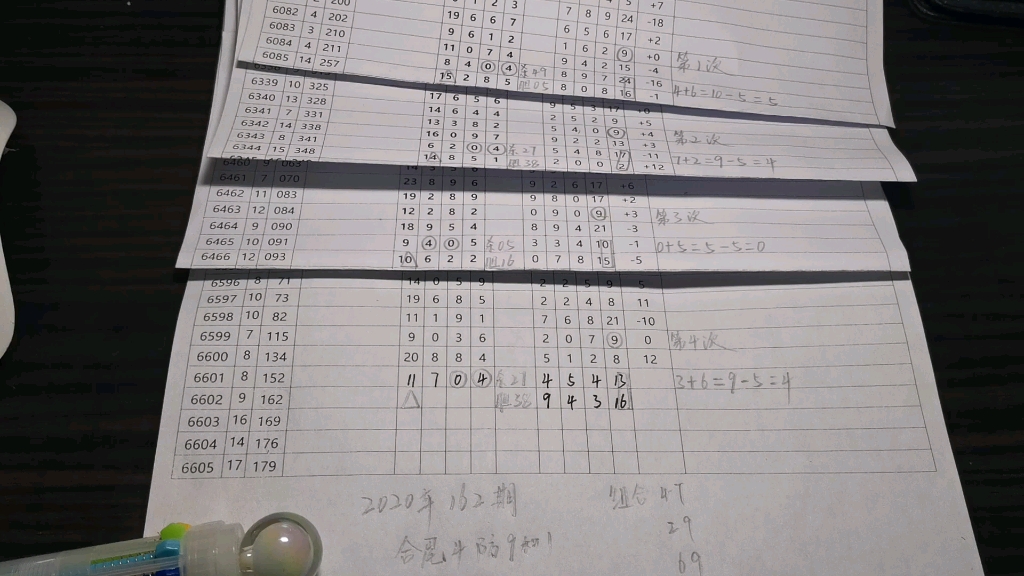 6082 4 202 19 6 6 7 7 8 9 24 -18
6083 3 210 9 6 1 2 6 5 6 17 +2
6084 4 211 11 0 7 4 1 6 2 9 +0 第1次
6085 14 257 8 4 0 4 9 4 2 15 -4
15 2 8 5 胆05 8 9 7 24 -16
8 0 8 16 -1 4+6=10-5=5
6339 10 325 17 6 5 6
6340 13 328 14 6 4 4
6341 7 331 13 3 8 2 2 5 2 9 +5
6342 14 338 16 0 9 7 5 4 0 9 +4 第2次
6343 8 341 6 2 0 4 全27 9 2 2 13 +3
6344 15 348 14 8 5 1 胆38 5 4 8 17 -11
2 0 0 2 +12 7+2=9-5=4
6461 7 070 23 8 9 6 9 2 6 17 +6
6462 11 083 19 2 8 9 9 8 0 17 +2
6463 12 084 12 2 8 2 0 9 0 9 +3 第3次
6464 9 090 18 9 5 4 8 9 4 21 -3
6465 10 091 9 4 0 5 全05 3 3 4 10 -1 0+5=5-5=0
6466 12 093 10 6 2 2 胆16 0 7 8 15 -5
6596 8 71 14 0 5 9 2 2 5 9 5
6597 10 73 19 6 8 5 2 2 4 8 11
6598 10 82 11 1 9 1 7 6 8 21 -10
6599 7 115 9 0 3 6 2 0 7 9 0 第4次
6600 8 134 20 8 8 4 5 1 2 8 12
6601 8 152 11 7 0 4 全27 4 5 4 13 3+6=9-5=4
6602 9 162 △ 胆38 9 4 3 16
6603 16 169
6604 14 176
6605 17 179
2020年162期 组合 47
29
合尾4防9和1
69